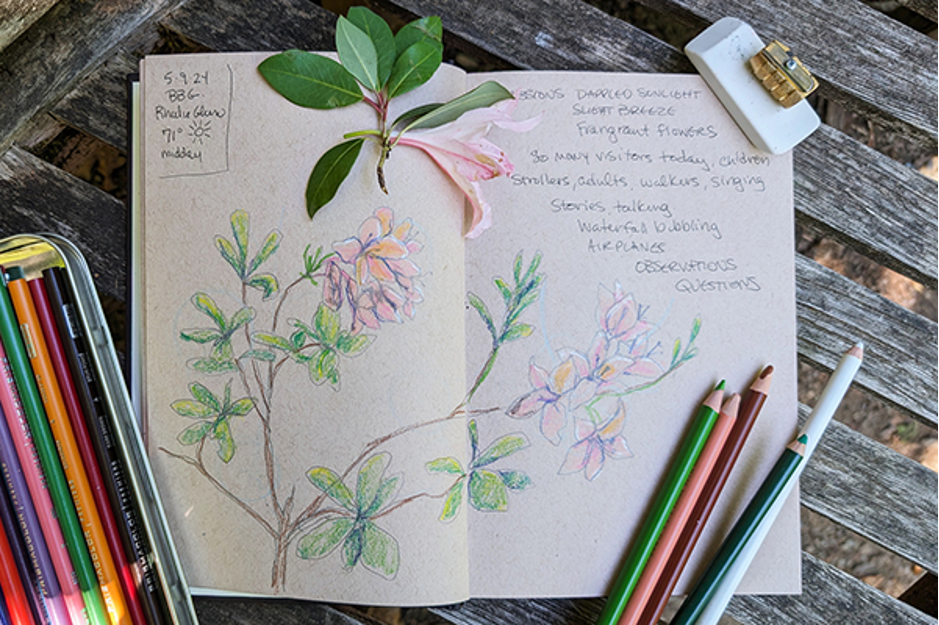 5.9.24
BBG
71°
midday
DAPPLED SUNLIGHT
SLIGHT BREEZE
Frangrant flowers
So many visitors today, children
strollers, adults, walkers, singing
Stories, talking
Waterfall bubbling
AIRPLANES
OBSERVATIONS
QUESTIONS